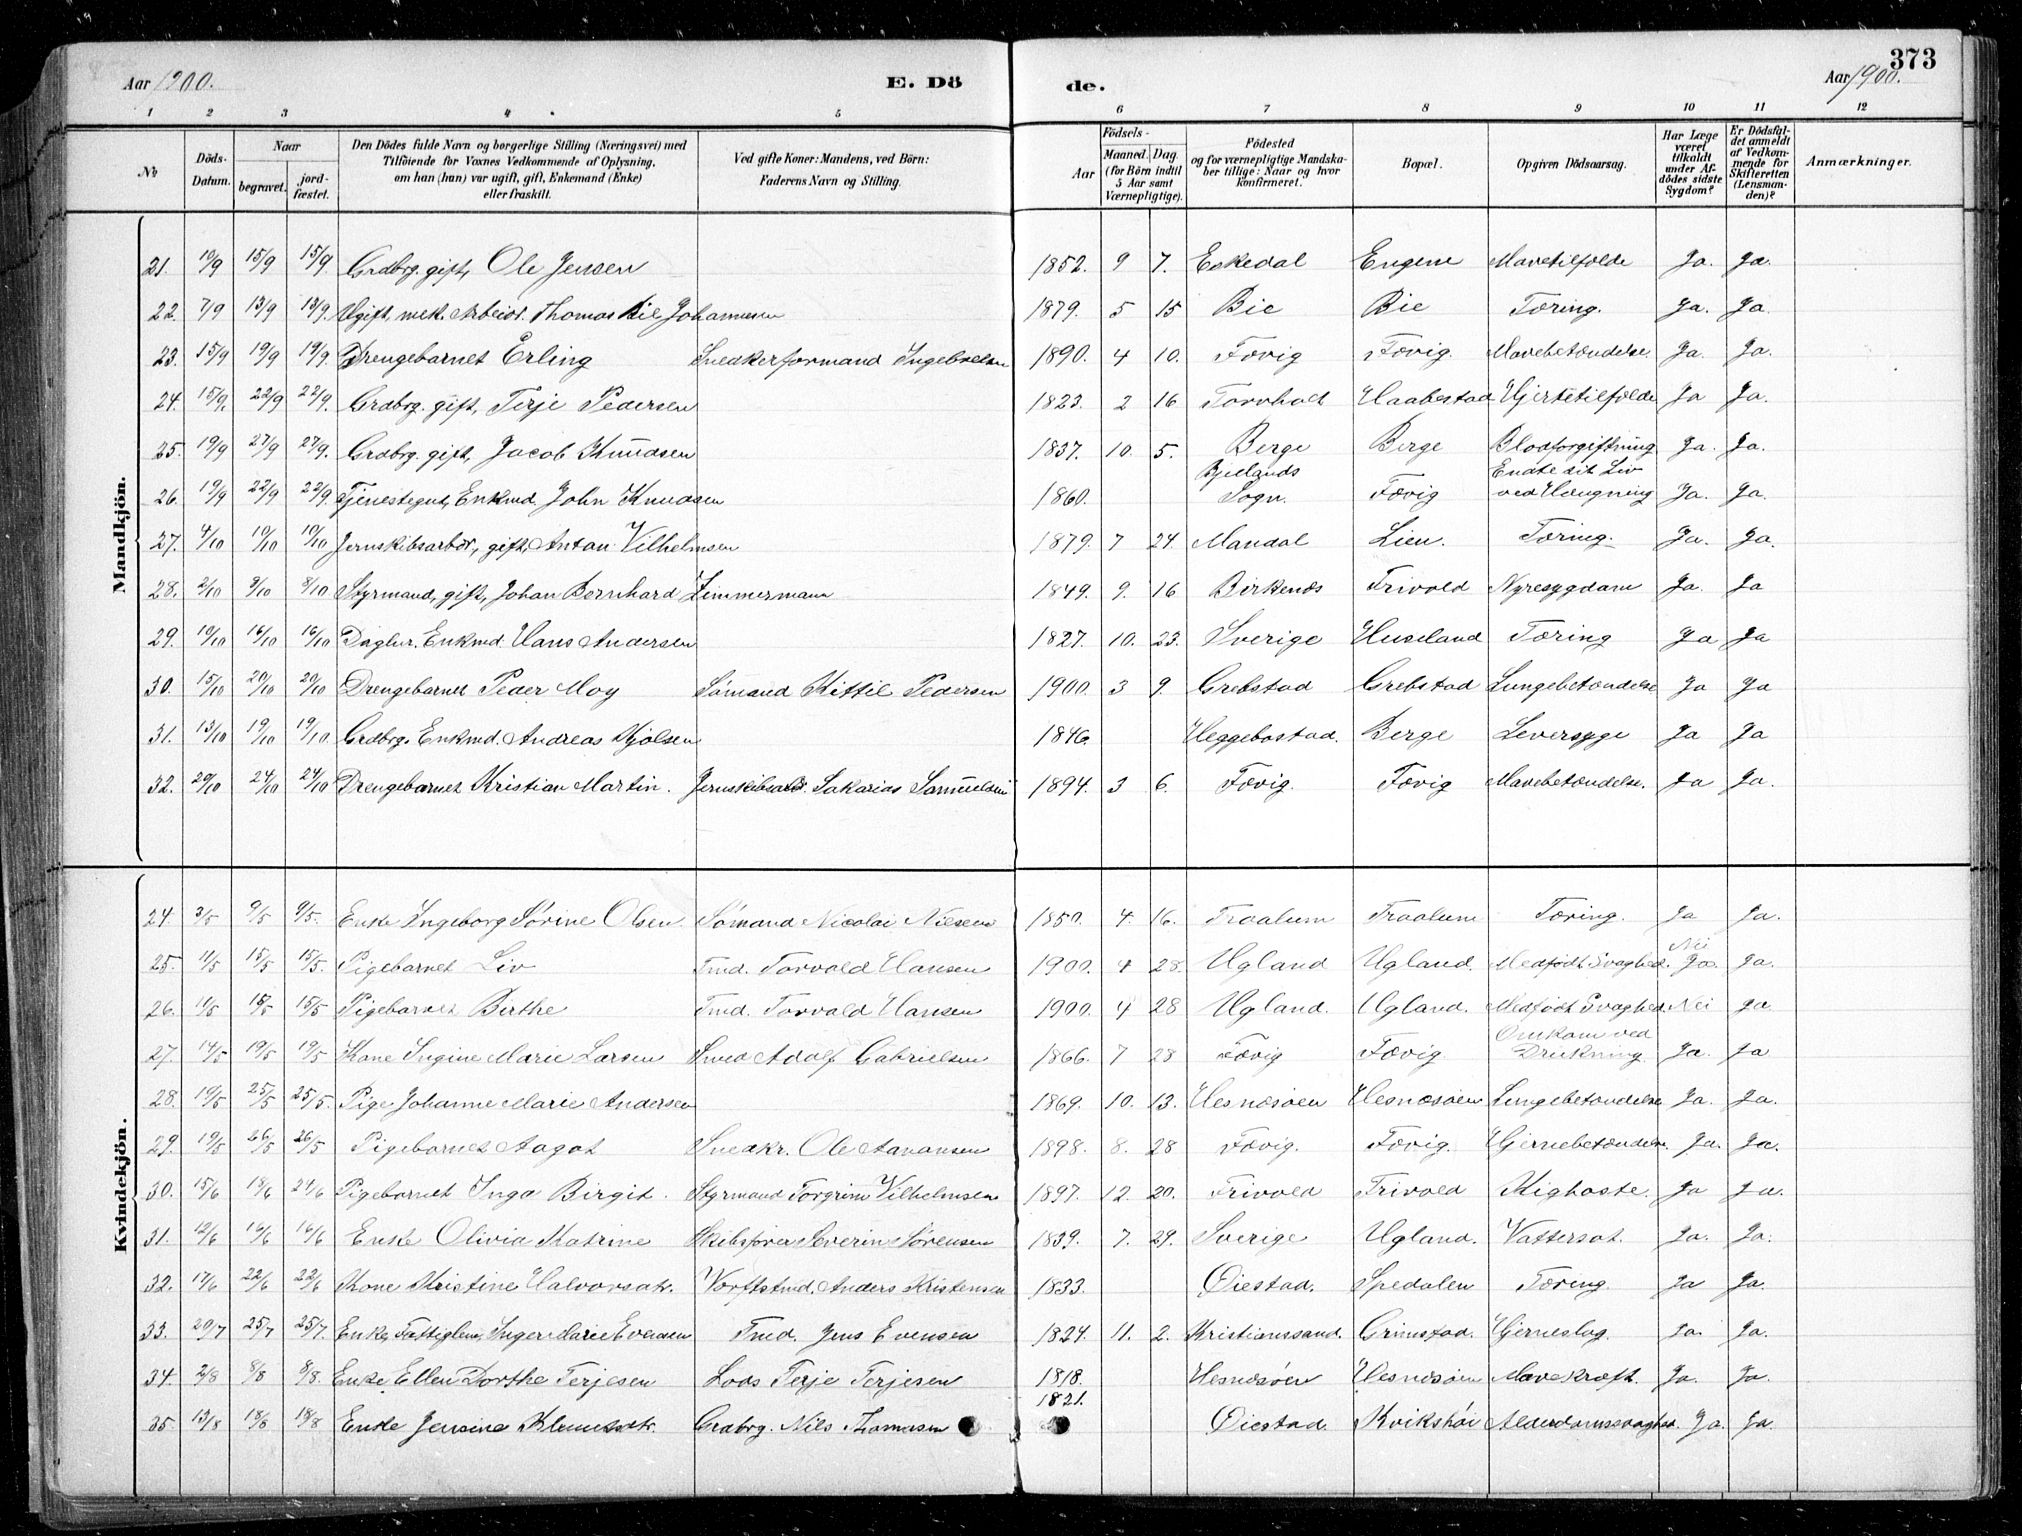 Aar 1900. E. Dö
de. Aar 1900. 373
1 2 3 4 5 6 7 8 9 10 11 12
No
Döds-Datum.
Naar
begravet.
jord-fæstet.
Den Dödes fulde Navn og borgerlige Stilling (Næringsvei) med
Tilföiende for Voxnes Vedkommende af Oplysning,
om han (hun) var ugift, gift, Enkemand (Enke)
eller fraskilt.
Ved gifte Koner: Mandens, ved Börn:
Faderens Navn og Stilling.
Födsels-
Aar
Maaned. Dag.
(for Börn indtil
5 Aar samt
Værnepligtige).
Födested
og for værnepligtige Mandska-
ber tillige: Naar og hvor
konfirmeret.
Bopæl.
Opgiven Dödsaarsag.
Har Læge
været
tilkaldt
under Af-
dödes sidste
Sygdom?
Er Dödsfal-
det anmeldt
af Vedkom-
mende for
Skifteretten
(Lensman-
den)?
Anmærkninger.
Mandkjön.
21. 10/9 15/9 15/9. Grdbrg. gift, Ole Jensen 1852. 9 7. Eskedal Engene Mavetilfælde Ja. Ja.
22. 7/9 13/9 13/9. Ugift, mek. Arbeidr. Thomas Bie Johannesen 1879. 5 15 Bie Bie Tæring. Ja. Ja.
23. 15/9 19/9 19/9. Drengebarnet Erling Snedkerformand Ingebretsen 1890. 4 10. Fævig Fævig. Mavebetændelse. Ja. Ja.
24. 15/9. 22/9 22/9. Grdbrg. gift, Terje Pedersen 1823. 2 16 Haabestad Hjertetilfælde Ja Ja.
25. 19/9 27/9 27/9. Grdbrg. gift, Jacob Knudsen 1837. 10. 5. Berge Berge Blodforgiftning Ja. Ja.
26. 19/9 22/9 22/9. Tjenestegut, Enkmd. John Knudsen 1860. Bjellands Sogn. Fævig Endte sit Liv ved Hængning Ja. Ja.
27. 4/10 10/10 10/10 Jernskibsarbdr., gift, Anton Vilhelmsen 1879. 7 24. Mandal Lien. Tæring. Ja. Ja.
28. 2/10 9/10 8/10 Styrmand, gift, Johan Bernhard Zimmermann 1849. 9. 16 Birkenæs Frivold Nyresygdom Ja. Ja
29. 10/10 16/10 16/10 Daglnr. Enkmd. Hans Andersen 1827. 10. 23. Sverige Huseland Tæring Ja Ja
30. 15/10 20/10 20/10 Drengebarnet Peder Moy Sömand Kittil Pedersen 1900. 3 9. Grebstad Grebstad Lungebetændelse Ja Ja
31. 13/10 19/10 19/10 Grdbrg. Enkmd. Andreas Kjölsen 1846. Heggebostad. Berge Leversyge Ja Ja
32. 20/10 24/10 24/10 Drengebarnet Kristian Martin. Jernskibsarbr. Sakarias Samuelsen 1894. 3 6. Fævig. Fævig Mavebetændelse. Ja Ja.
Kvindekjön.
24. 3/5 9/5 9/5. Enke Ingeborg Sörine Olsen. Sömand Nicolai Nilsen 1850. 4. 16. Traalum Traalum Tæring. Ja Ja.
25. 11/5 15/5 15/5. Pigebarnet Liv Tmd. Torvald Hansen 1900. 4 28. Ugland Ugland. Medfödt Svaghed. Nei Ja. Ja.
26. 11/5 15/5 15/5 Pigebarnet Birthe Tmd. Torvald Hansen 1900. 4 28 Ugland. Ugland. Medfödt Svaghed Nei Ja
27. 14/5 19/5 19/5 Kone Ingine Marie Larsen Smed Adolf Gabrielsen 1866. 7 28 Fævig Fævig. Omkom ved Drukning Ja. Ja
28. 19/5 25/5 25/5. Pige Johanne Marie Andersen 1869. 10. 13. Hesnæsöen Hesnæsöen Lungebetændelse Ja. Ja.
29. 19/5 26/5 26/5 Pigebarnet Aagot Snedkr. Ole Aanonsen 1898. 8. 28 Fævig. Fævig. Hjernebetændelse. Ja. Ja.
30. 15/6 18/6 24/6 Pigebarnet Inga Birgit. Styrmand Torgrim Vilhelmsen 1897. 12. 20. Frivold Frivold Kighoste. Ja Ja.
31. 12/6 16/6 16/6 Enke Olivia Katrine Skibsförer Severin Sörensen 1839. 7. 29. Sverige Ugland. Vattersot. Ja. Ja.
32. 17/6 22/6 22/6 Kone Kristine Halvorsdtr. Værftstmd. Anders Kristensen 1833. Öiestad. Spedalen Tæring. Ja Ja.
33. 20/7 25/7 25/7. Enke, Fattiglem, Inger Marie Evensen Tmd. Jens Evensen 1824. 11. 2. Kristianssand. Grimstad. Hjerneslag. Ja. Ja.
34. 2/8 8/8 8/8. Enke Ellen Dorthe Terjesen Lods Terje Terjesen 1818. Hesnæsöen Hesnæsöen Mavekræft. Ja. Ja.
35. 13/8 18/8 18/8 Enke Jensine Klemetsdtr. Grdbrg. Nils Thomassen 1821. Öiestad. Kvikshöi Alderdomssvaghed. Ja. Ja.